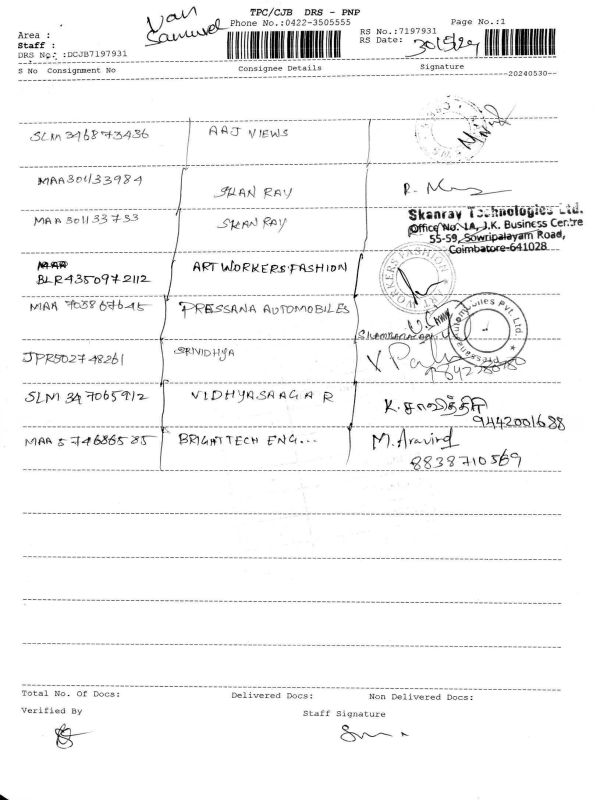 TPC/CJB DRS - PNP
Van
Samuvel
Phone No.:0422-3505555
Page No.:1
Area :
Staff :
DRS No. :DCJB7197931
RS No.:7197931
RS Date: 30/5/24
S No Consignment No
Consignee Details
Signature
--20240530--
SLM 346873436
AAJ VIEWS
MAA301133984
SKAN RAY
MAA 301133733
SKANRAY
Skanray Technologies Ltd.
Office No. 1A, J.K. Business Centre
55-59, Sowripalayam Road,
Coimbatore-641028
BLR4350972112
ART WORKERS FASHION
ART WORKERS FASHION
MAA 703867645
PRESSANA AUTOMOBILES
Pressana Automobiles Pvt. Ltd.
JPR502748261
SRIVIDHYA
SLM 347065912
VIDHYASAAGAR
K. சாவித்திரி
9442001688
MAA 574686585
BRIGHTTECH ENG...
M. Aravind
8838710569
Total No. Of Docs:
Delivered Docs:
Non Delivered Docs:
Verified By
Staff Signature